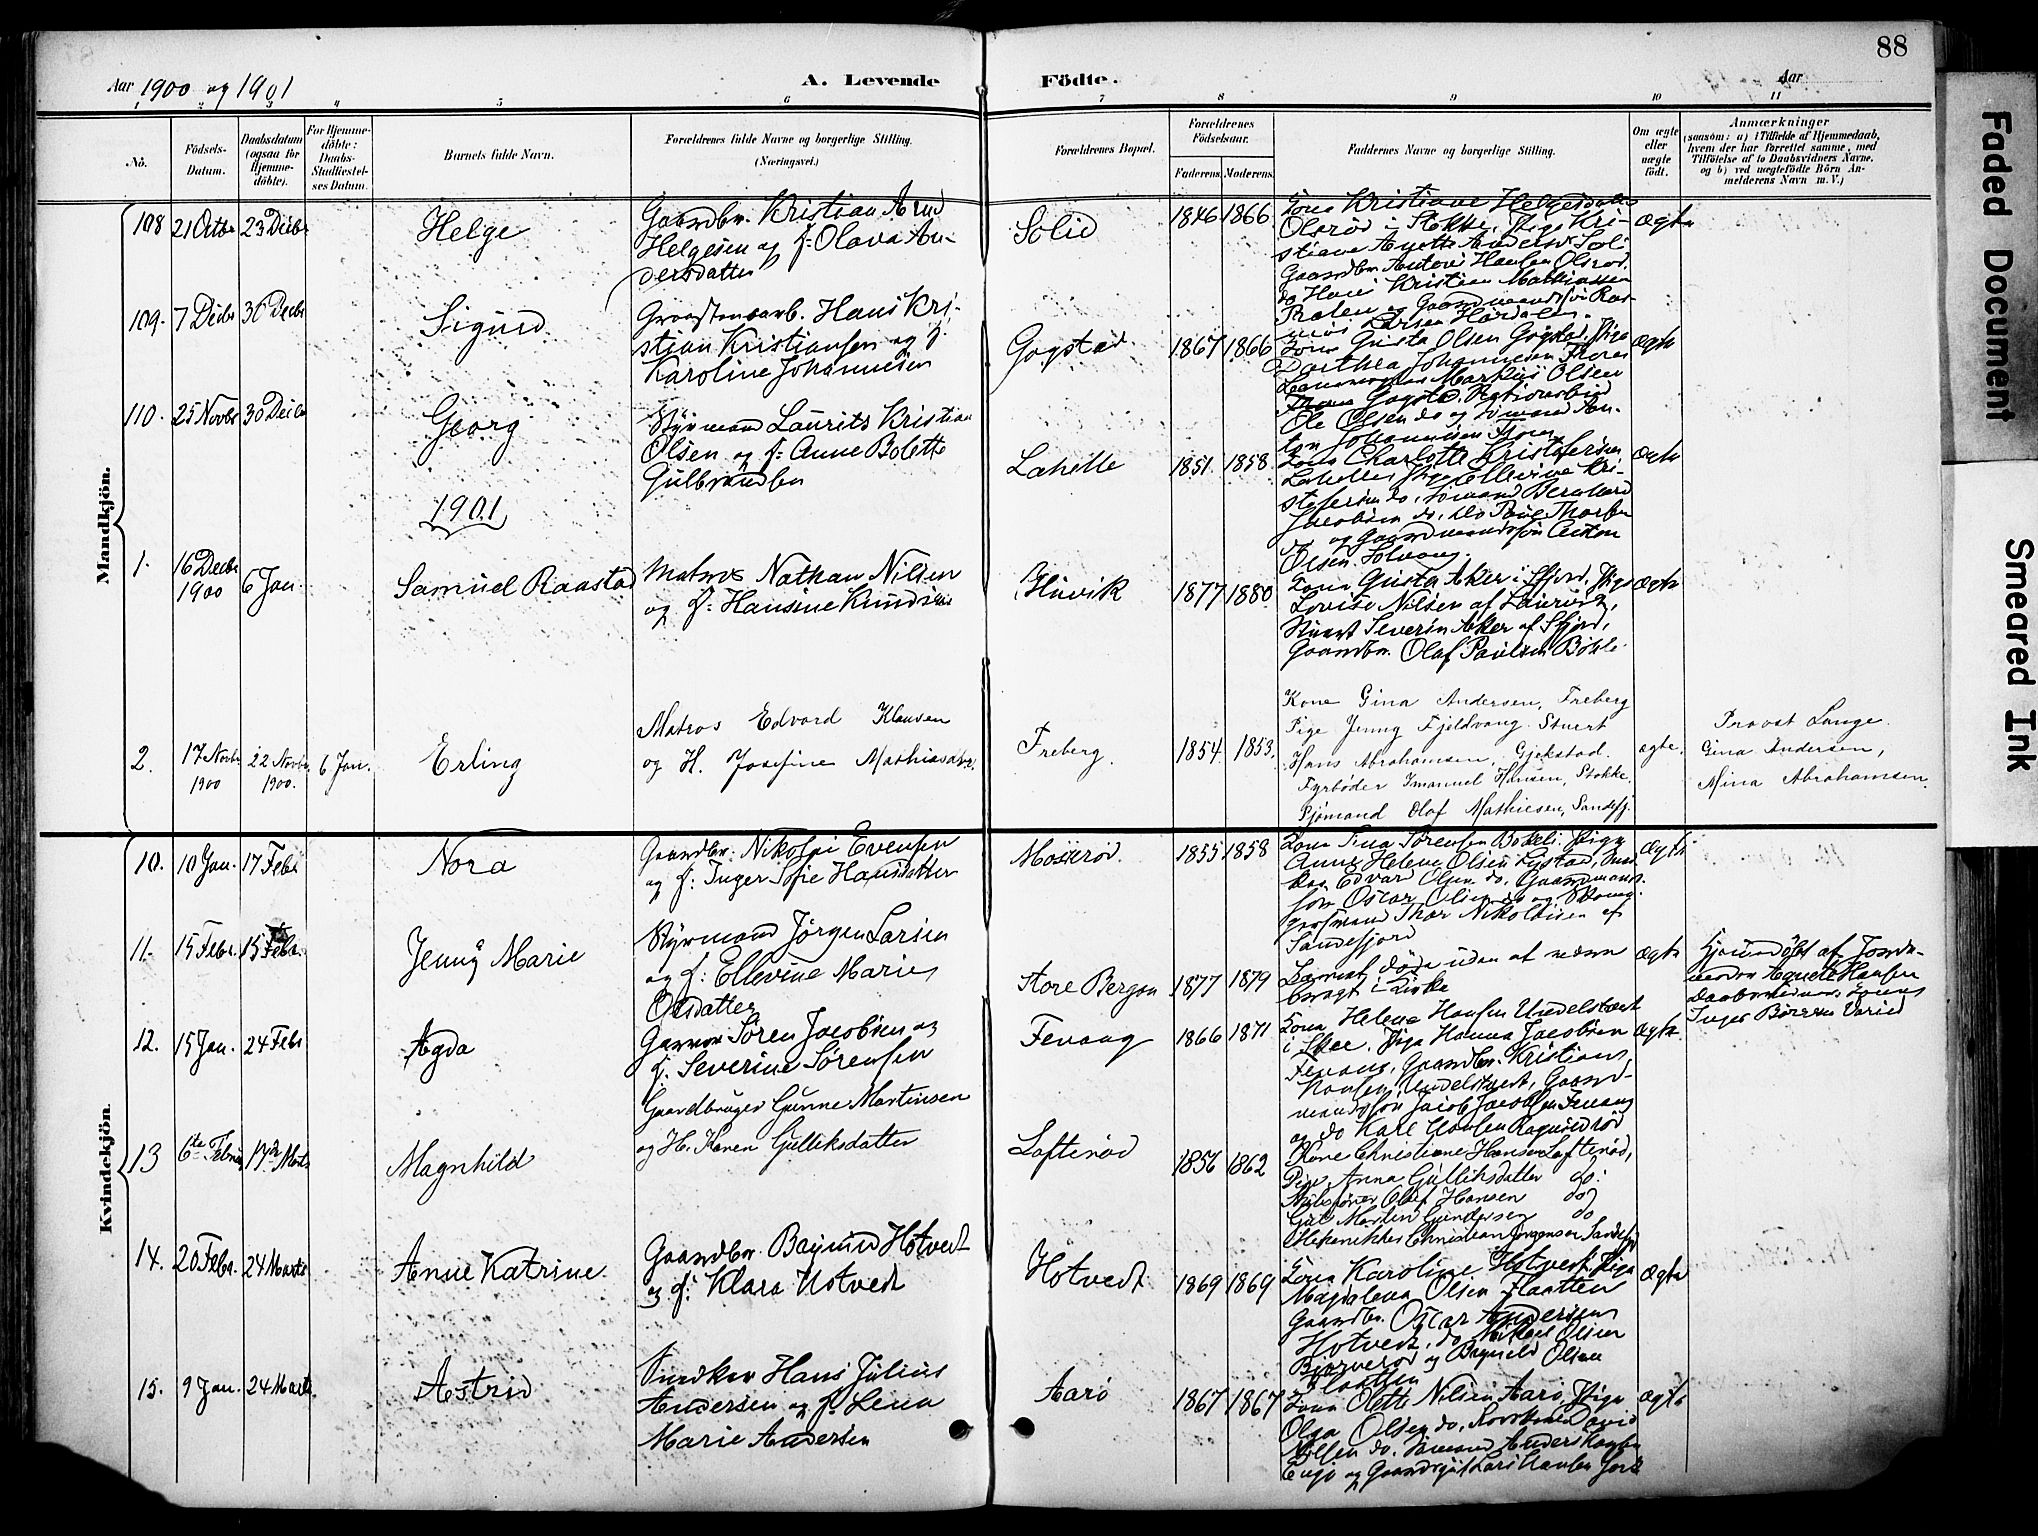 88
Aar 1900 og 1901
A. Levende Födte.
Aar
1 2 3 4 5 6 7 8 9 10 11
No.
Födsels-Datum.
Daabsdatum (ogsaa for Hjemme-döbte).
For Hjemme-döbte: Daabs-Stadfæstel-ses Datum.
Barnets fulde Navn.
Forældrenes fulde Navne og borgerlige Stilling.
(Næringsvei.)
Forældrenes Bopæl.
Forældrenes Födselsaar.
Faderens. Moderens.
Faddernes Navne og borgerlige Stilling.
Om ægte eller uægte födt.
Anmærkninger
(saasom: a) i Tilfælde af Hjemmedaab, hvem der har forrettet samme, med Tilföielse af to Daabsvidners Navne, og b) ved uægtefödte Börn An-melderens Navn m. V.)
Mandkjön.
108 21 Octbr 23 Decbr Helge
Gaardbr. Kristian Arnd
Helgesen og f. Olava An-
dersdatter
Solid 1846 1866
Kona Kristiane Helgesdatter
Olsrød i Stokke, Pige Kri-
stiane Anette Andersd Soli
Gaardbr Hansen Olsrød,
do Hans Kristian Mathiassen
og Gaardmandssøn Ras-
mus Larsen
ægte
109. 7 Decbr 30 Decbr Sigurd.
Hans Kri-
stian Kristiansen og f.
Karoline Johannesen
Gogstad. 1867 1866
Kona Gusta Olsen Gogstad, Pige
Dorthea Johannesen
Markus Olsen
Gogstad,
Ole Olsen do og Sømand An-
ton Johannesen
ægte
110. 25 Novbr 30 Decbr Georg
Styrmand Laurits Kristian
Olsen og f. Anne Bolette
Gulbrandsen
Lahelle 1851. 1858.
Kona Charlotte Kristofersen
Lahelle, Pige Ellevine Kri-
stofersen do, Sømand Bernhard
Jacobsen do, do Paul
og Gaardmandssøn Anton
Olsen Solvang.
ægte
1901
1. 16 Decbr 1900 6 Jan. Samuel Raastad
Matros Nathan Nilsen
og f. Hansine Knudsen
Huvik 1877 1880.
Kona Gusta Aker i Sfjord, Pige
Lovise Nilsen af Laurvig,
Stuert Severin Aker af Sfjord,
Gaardbr. Olaf Paulsen Bøhle
ægte
2. 17 Novbr 1900 22 Novbr 1900. 6 Jan. Erling
Matros Edvard Klausen
og H. Josefine Mathiasdtr.
Freberg. 1854. 1853.
Kone Gina Andersen, Freberg
Pige Jenny Fjeldvang. Stuert
Hans Abrahamsen, Gjekstad.
Fyrbøder Imanuel Hansen, Stokke,
Sjømand Olaf Mathiesen, Sandefj.
ægte.
Provst Lange.
Gina Andersen,
Mina Abrahamsen.
Kvindekjön.
10. 10 Jan. 17 Febr Nora
Gaardbr. Nikolai Evensen
og f. Inger Sofie Hansdatter
Moserød. 1855 1858
Kona Tina Sørensen Pige
Anne Helene Olsen
Edvard Olsen do, Gaardmands-
søn Oscar Olsen do og
Thor Nikolaisen af
Sandefjord
ægte
11. 15 Febr. 15 Febr. Jenny Marie
Styrmand Jørgen Larsen
og f. Ellevine Marie
Olsdatter
Store Bergan 1877 1879
Barnet døde uden at være
bragt i Kirke
ægte
Hjemmedøbt af Jorde-
moder Agnete Hansen
Daabsvidner
Inger
12. 15 Jan. 24 Febr Agda
Garver Søren Jacobsen og
f. Severine Sørensen
Fevang 1866 1871
Kona Helene Hansen Undelstvedt
i Skee, Pige Hanna Jacobsen
Fevang, Gaardbr. Kristian
Hansen, Undelstvedt, Gaard-
mandssøn Jacob Jacobsen Fevang
og do Karl Hansen
ægte.
13 6te Februar 17de Marts Magnhild
Gaardbruger Gunne Martinsen
og H. Karen Gulliksdatter
Lofterød 1856 1862
Kone Christiane Hansen Lofterød,
Pige Anna Gulliksdatter do:
Olaf Hansen do
Martin Gundersen do
Mekanikker Christian Jørgensen Sandefj
14. 20 Febr. 24 Marts Anne Katrine.
Gaardbr. Hotvedt
og f. Klara Hotvedt
Hotvedt 1869 1869
Kona Karoline Hotvedt, Pige
Magdalena Olsen Flaatten
Gaardbr. Oscar Andersen
Hotvedt, do Olsen
og Olsen
Flaatten
ægte
15. 9 Jan. 24 Marts. Astrid
Snedker Hans Julius
Andersen og f. Lena
Marie Andersen
Aarø 1867 1867
Kona Olette Nilsen Aarø, Pige
Olga Olsen do, David
Nilsen do, Sømand Anders
Engø og Lars Hansen
ægte
Faded Document
Smeared Ink